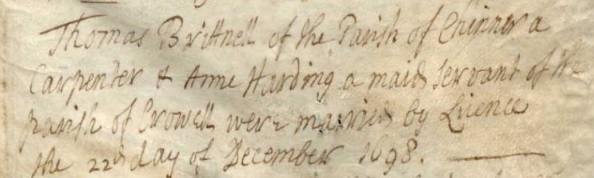 Thomas Brittnell of the Parish of Chinnor a
Carpenter & Anne Harding a maid servant of the
parish of Crowell were married by Licence
the 22d day of December 1698.